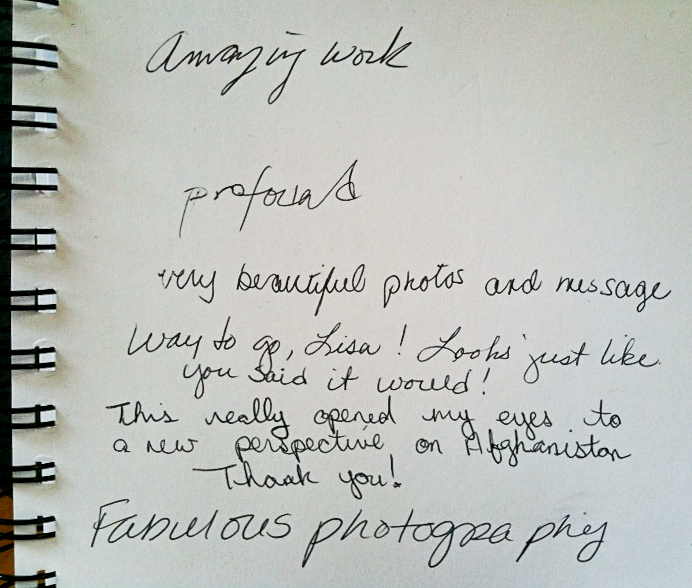 Amazing work
profound
very beautiful photos and message
Way to go, Lisa! Looks just like
you said it would!
This really opened my eyes to
a new perspective on Afghanistan
Thank you!
Fabulous photography